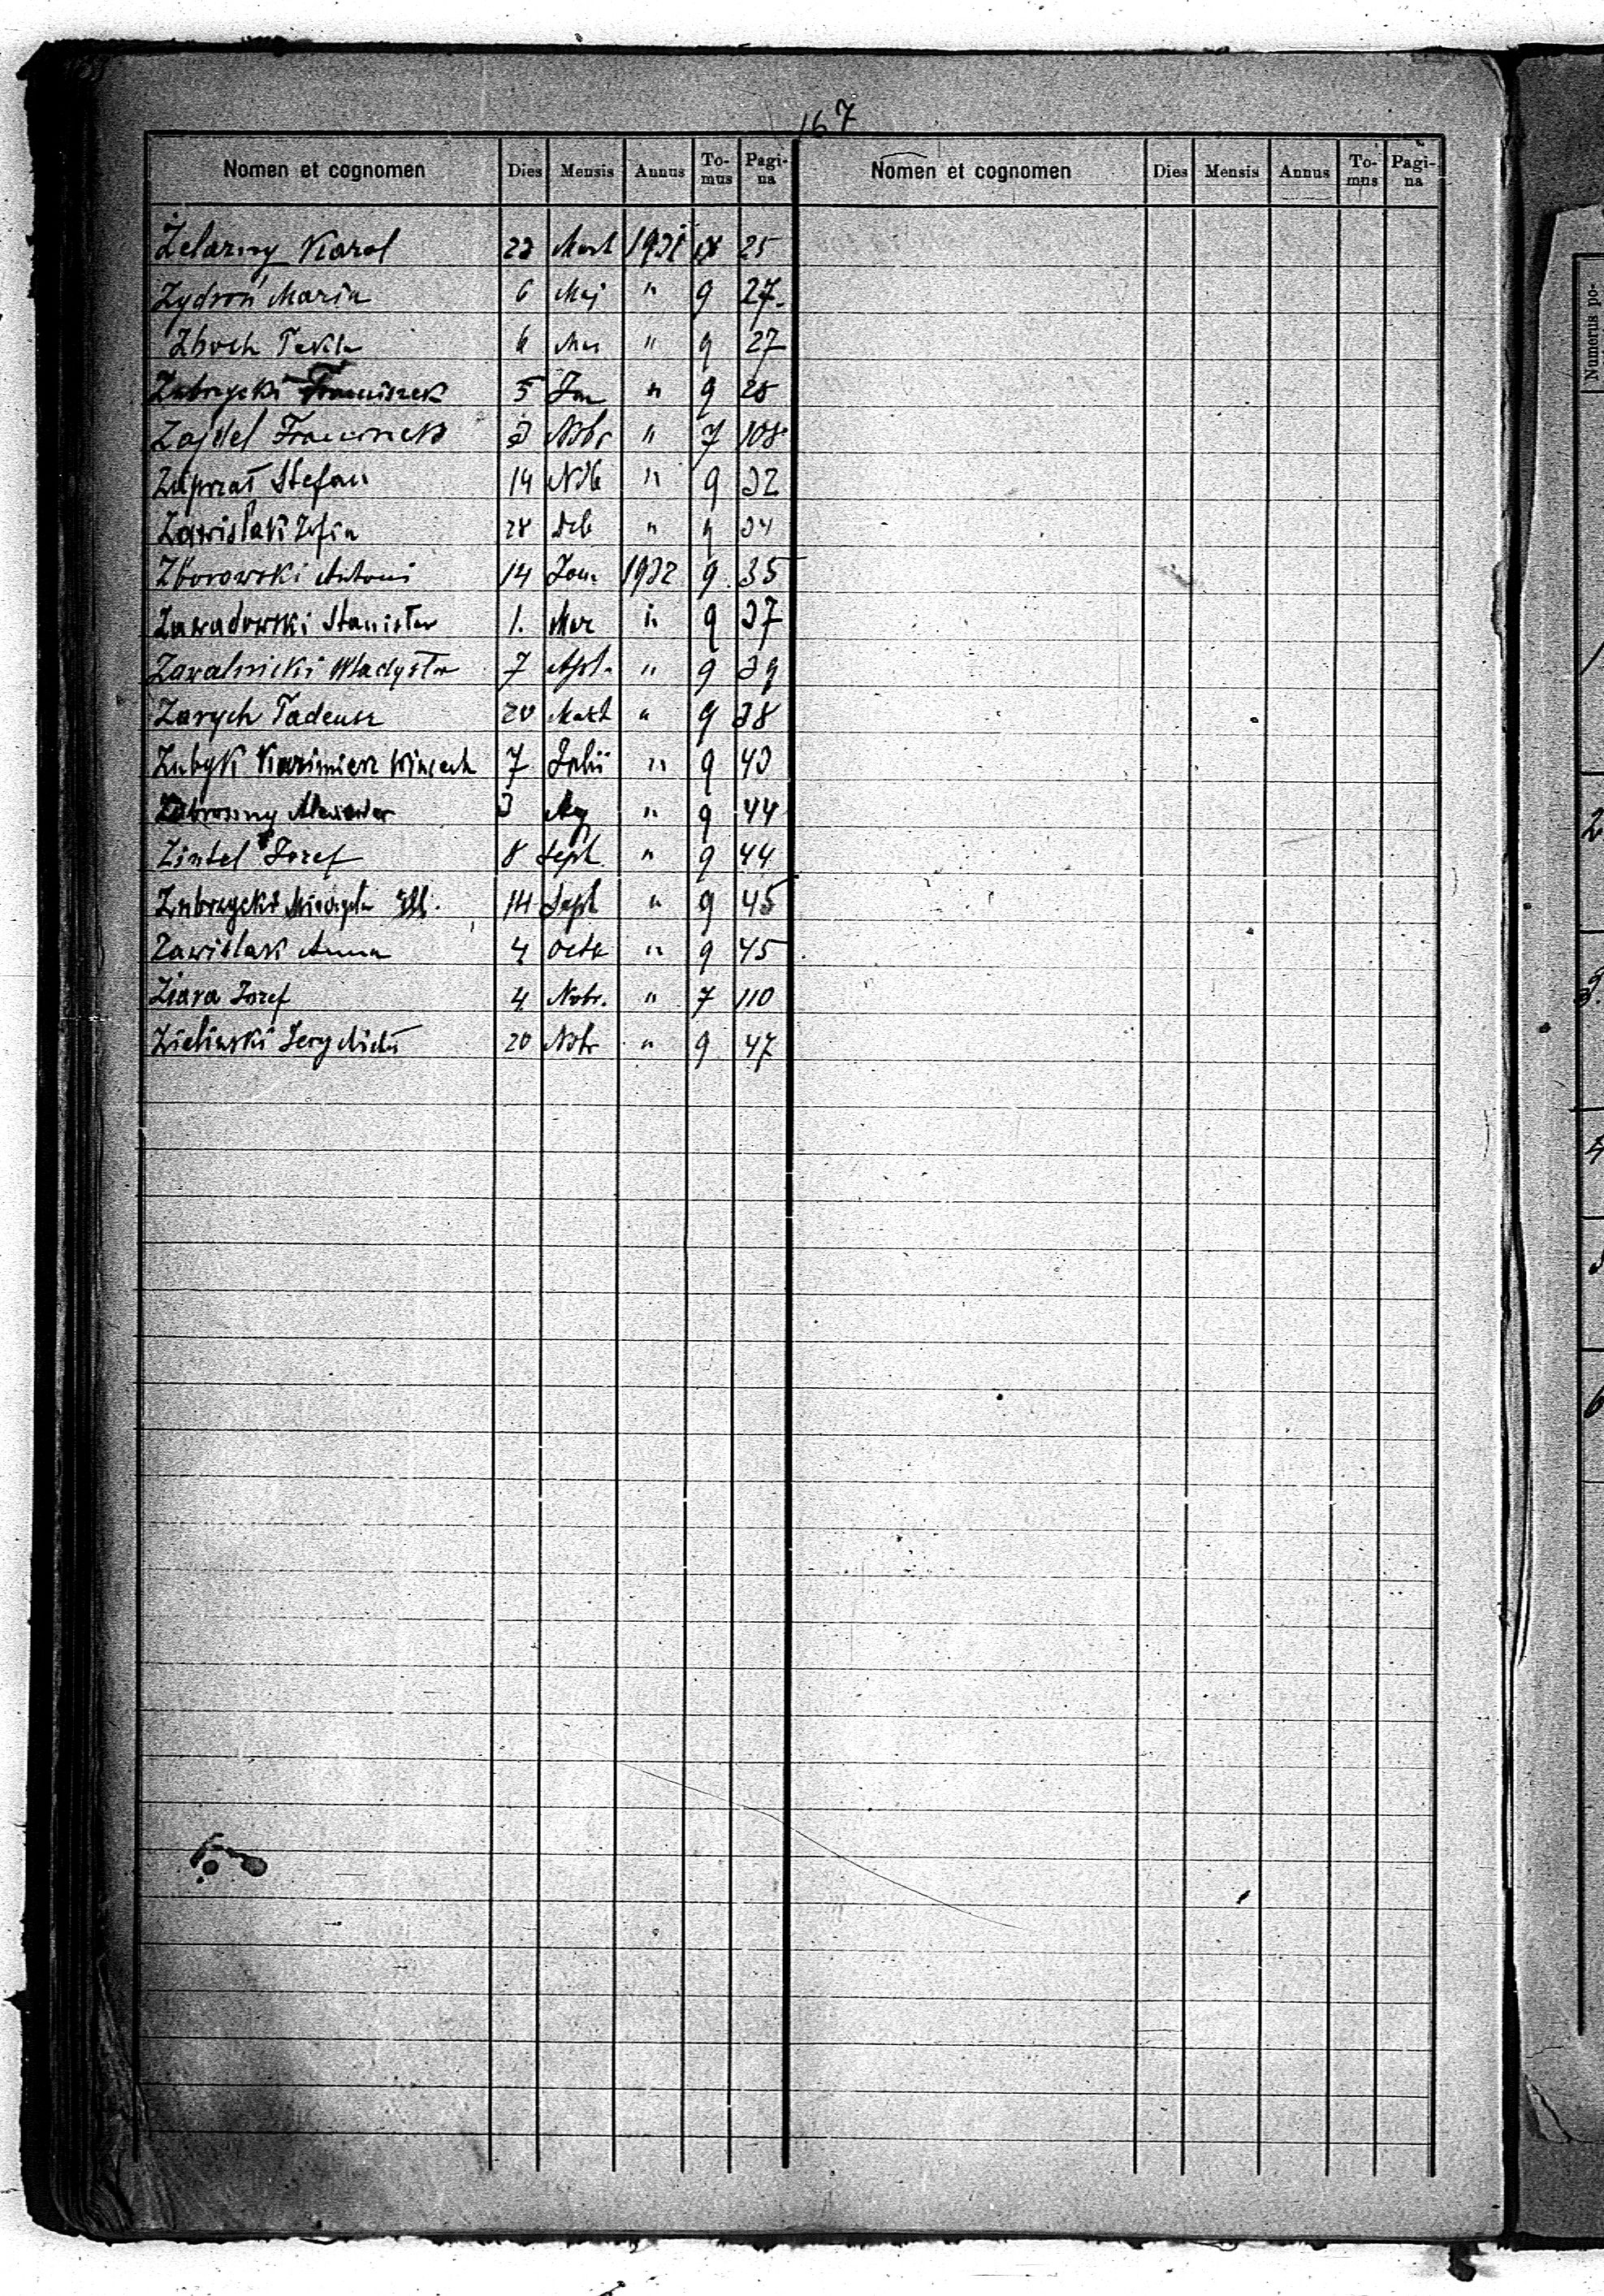 167
Nomen et cognomen Dies Mensis Annus To-mus Pagi-na Nomen et cognomen Dies Mensis Annus To-mus Pagi-na
Żelazny Karol 23 Mart 1931 25
Zydroń Maria 6 Maj " 9 27
Zboch Tekla 6 " 9 27
Zubrzycki Franciszek 5 Jan " 9 25
Zajdel Franciszek 3 Nbr " 7 108
Stefan 14 " 9 32
Zawiślak Zofia 28 Deb " 9 34
Zborowski Antoni 14 Jan 1932 9 35
Zawadowski Stanisław 1. Mar " 9 37
Zawalnicki Władysław 7 Apl. " 9 39
Zarych Tadeusz 20 Mart " 9 38
Zubyk Kazimierz Wincent 7 Julii " 9 43
3 Aug " 9 44
Zintel Józef 8 Sept. " 9 44
Zubrzycki 14 Sept " 9 45
Zawiślak Anna 4 Octb " 9 45
Ziara Józef 4 Novbr. " 7 110
Zieliński Jerzy 20 Nbr " 9 47
Numerus po-
2
3.
4
6